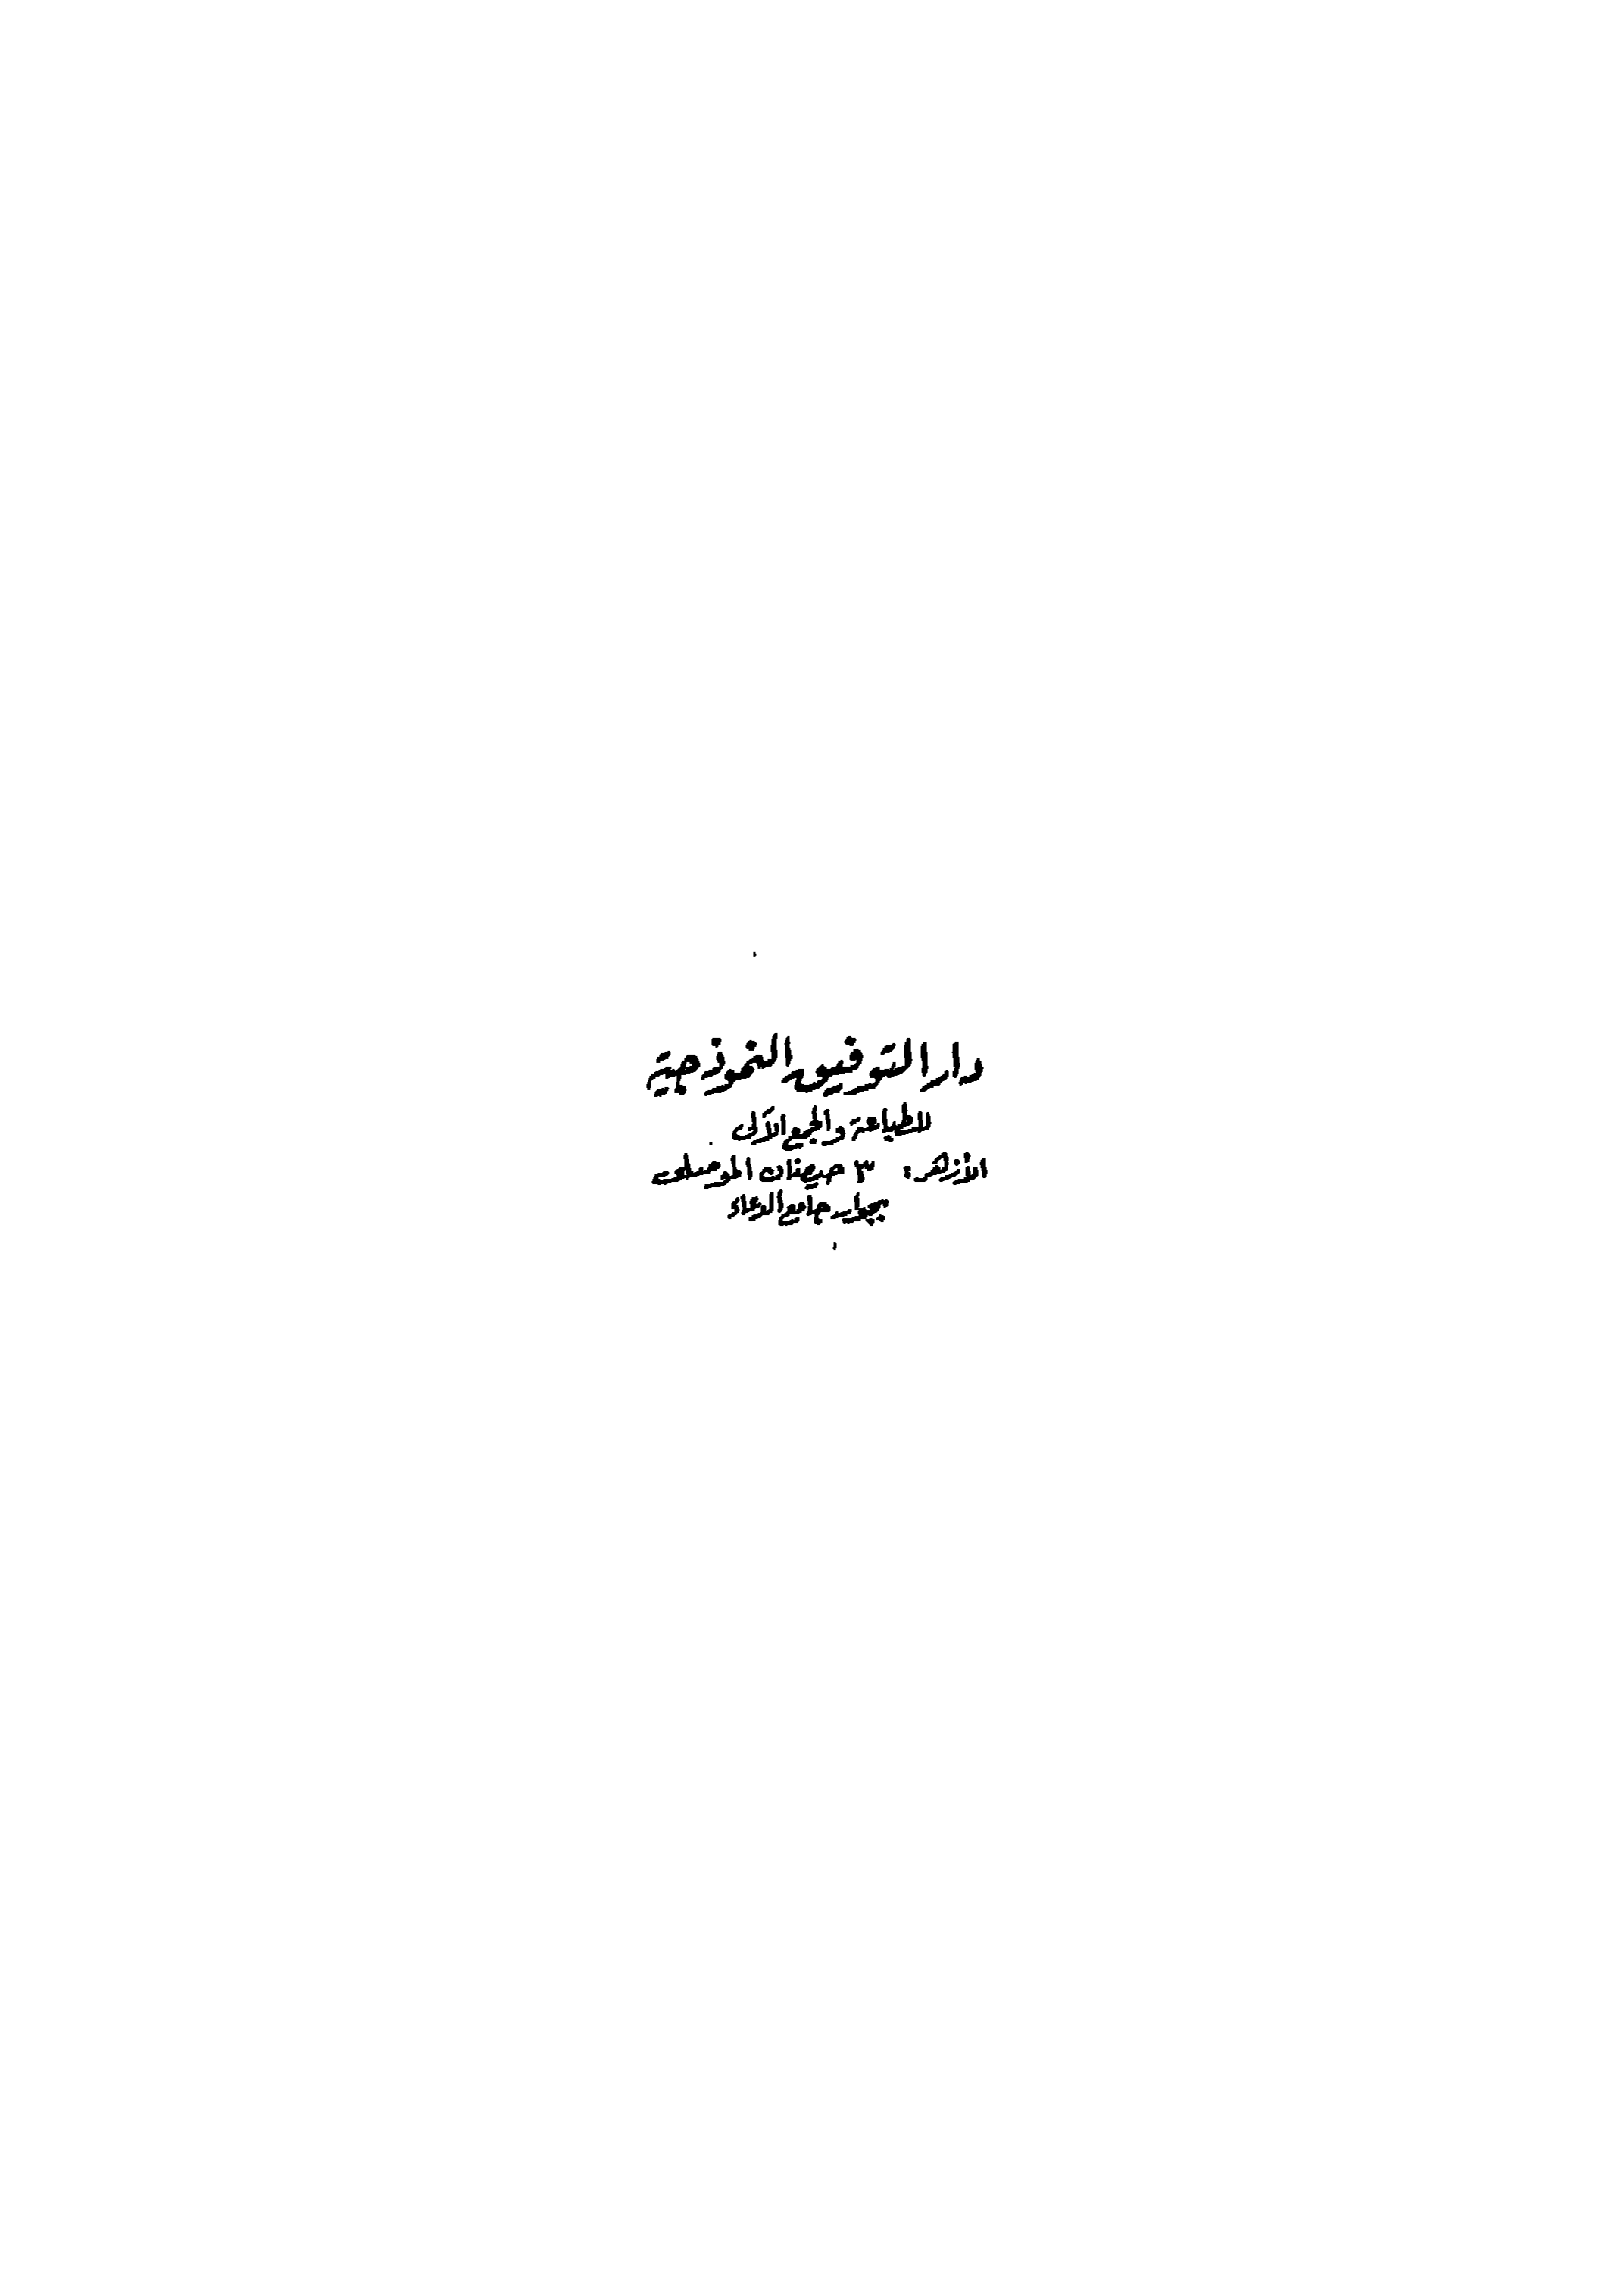 دار التوفيق النموذجية
للطباعة والجمع الآلى
الأزهر: ٣ حيضان الموصلى
بجوار جامع الدعاء